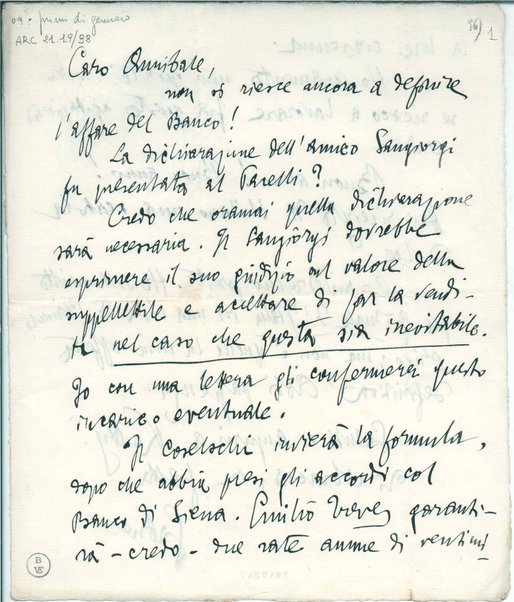 09 - primi di gennaio
ARC 21.19/38
36) 1
Caro Annibale,
non si riesce ancora a definire
l'affare del Banco!
La dichiarazione dell'amico Sangiorgi
fu presentata al Parelli?
Credo che oramai quella dichiarazione
sarà necessaria. Il Sangiorgi dovrebbe
esprimere il suo giudizio sul valore della
suppellettile e accettare di far la vendi-
ta nel caso che questa sia inevitabile.
Io con una lettera gli confermerei questo
incarico eventuale.
Il Coselschi invierà la formula,
dopo che abbia presi gli accordi col
Banco di Siena. Emilio Treves garanti-
rà - credo - due rate annue di ventimi-